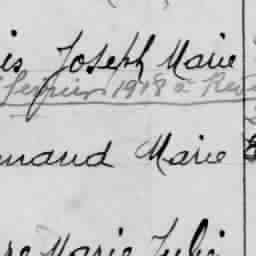 is Joseph Marie
février 1918 à Ren
naud Marie
re Marie Julie